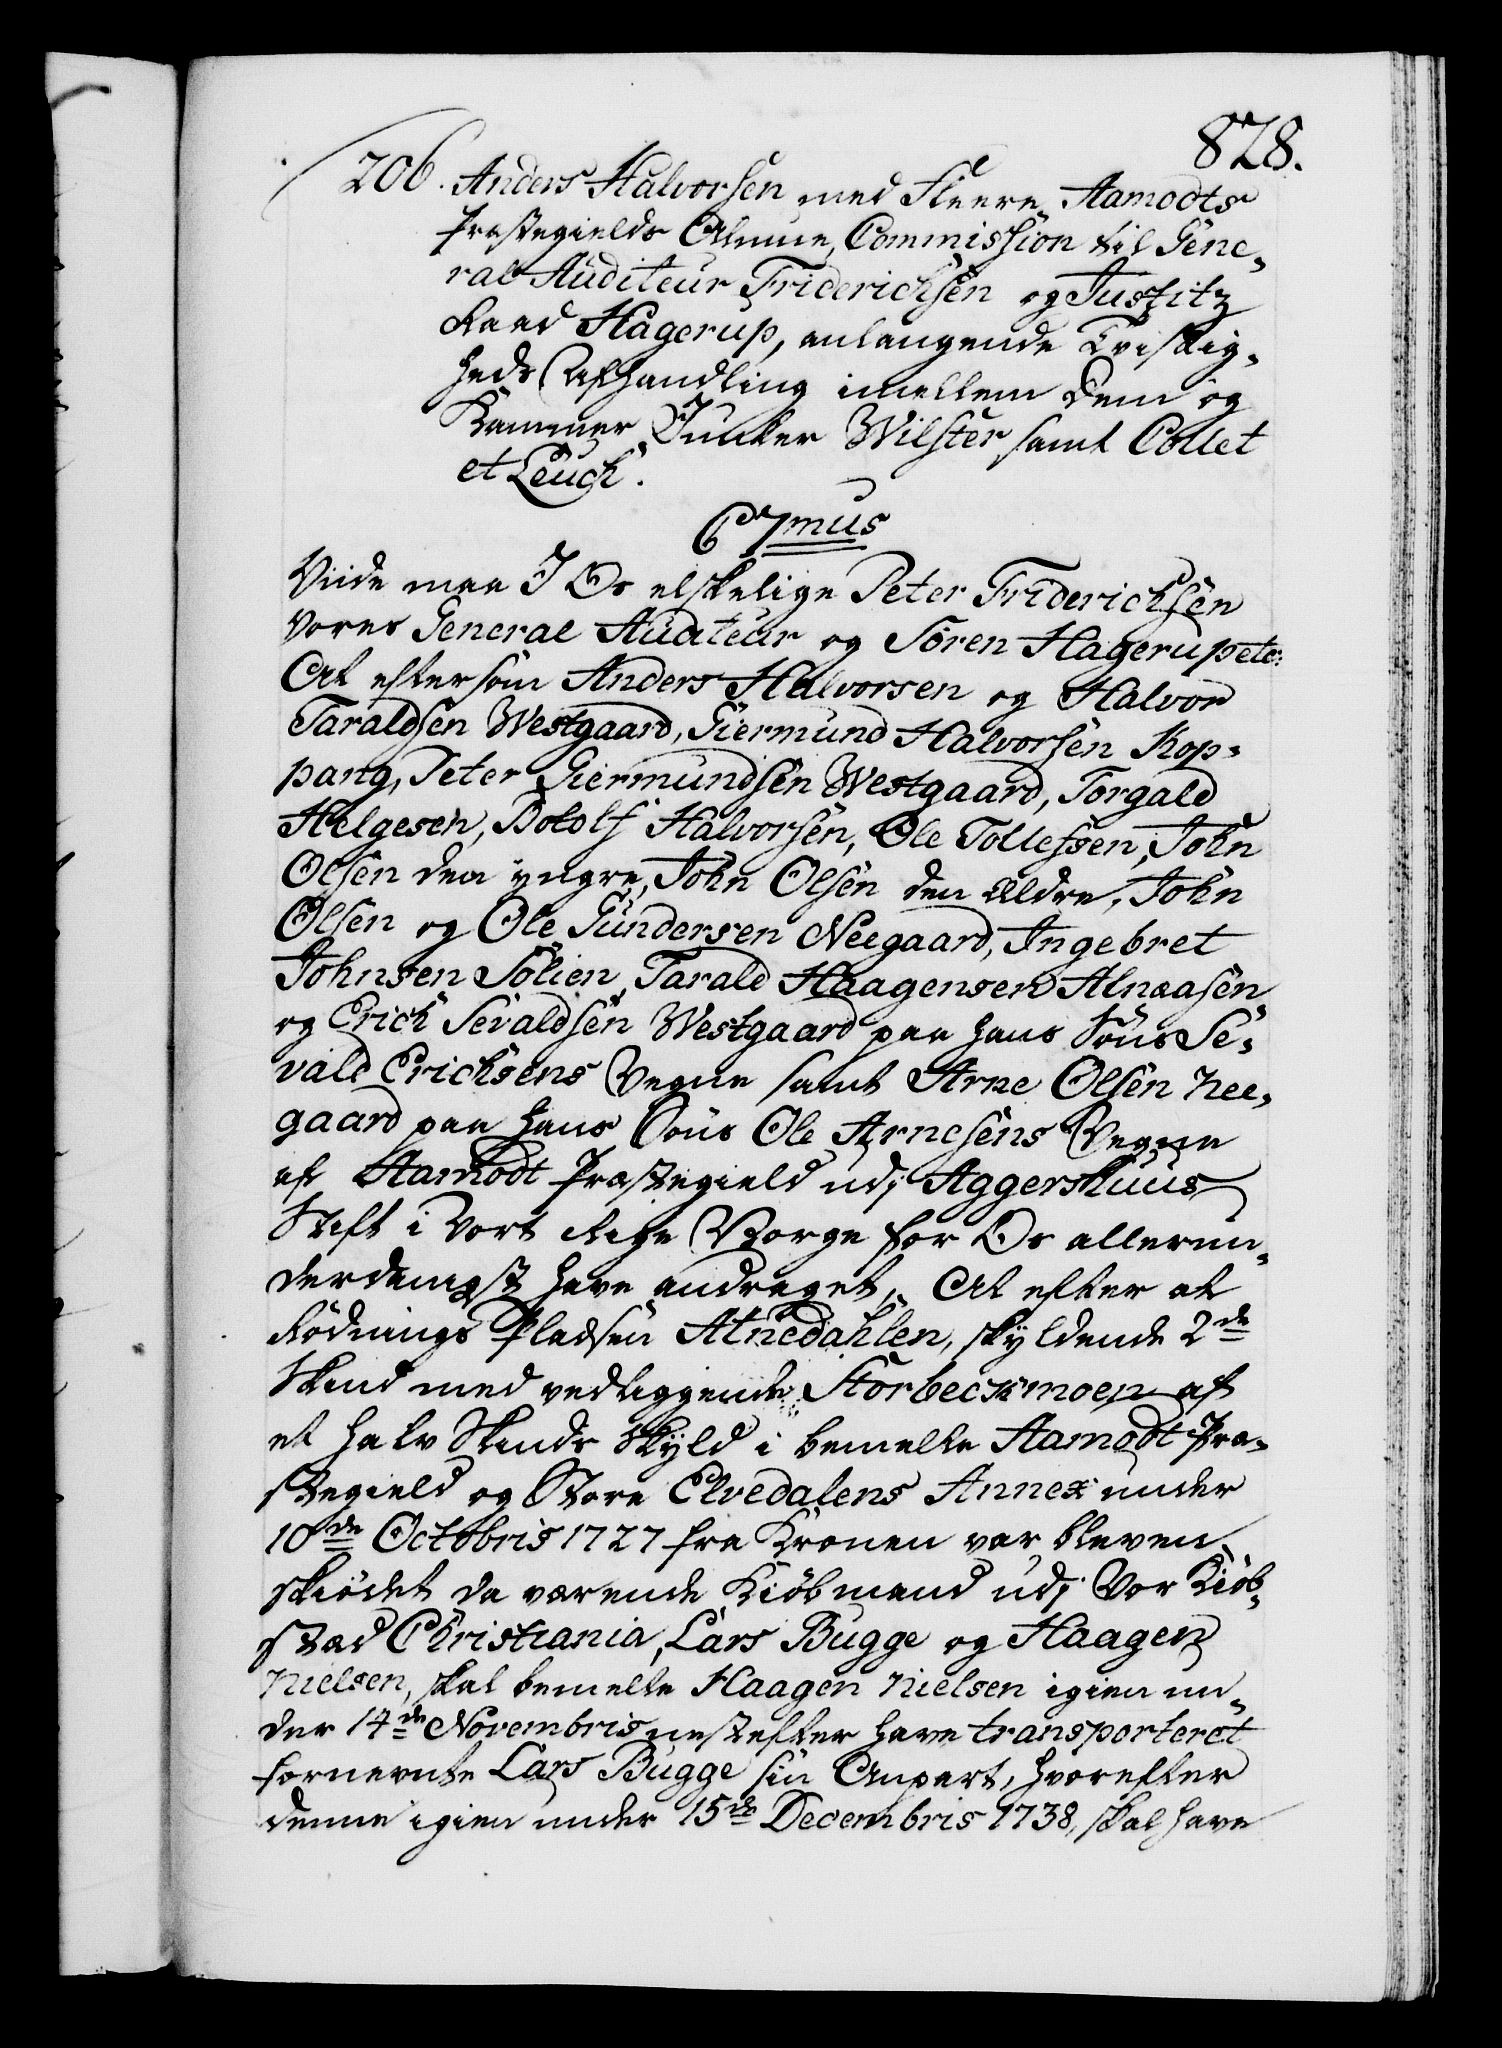 828.
206. Anders Halvorsen med Fleere Aamodts
Præstegields Almue, Commission til Gene-
ral Auditeur Friderichsen og Justitz
Raad Hagerup, anlangende Tvistig-
heds Afhandling imellem dem og
Kammer Junker Wilster samt Collet
et Leuch.
C7mus
Viide maa I Os elskelige Peter Friderichsen
Vores General Auditeur og Søren Hagerup etc:
At eftersom Anders Halvorsen og Halvor
Taraldsen Westgaard, Giermund Halvorsen Kop-
pang, Peter Giermundsen Westgaard, Torgald
Helgesen, Botolf Halvorsen, Ole Tollefsen, John
Olsen den yngre, John Olsen den Ældre, John
Olsen og Ole Gundersen Neegaard, Ingebret
Johnsen Sølien, Tarald Haagensen Alnæasen
og Erich Sevaldsen Westgaard paa hans Søns Se-
vald Erichsens Vegne samt Arne Olsen Nee-
gaard paa hans Søns Ole Arnesens Vegne
af Aamodt Præstegield udj Aggershuus
Stift i Vort Rige Norge for Os allerun-
derdanigst have andraget, At efter at
Rødnings Pladsen Atnedahlen, skyldende 2de
Skind med vedliggende Storbeckmoen af
et halv Skinds Skyld i bemelte Aamodt Præ-
stegield og Store Elvedalens Annex under
10de Octobris 1727 fra Kronen var bleven
skiødet da værende Kiøbmænd udj Vor Kiøb-
stæd Christiania, Lars Bugge og Haagen
Nielsen, skal bemelte Haagen Nielsen igien un-
der 14de Novembris nestefter have transporteret
fornevnte Lars Bugge sin Anpart, hvorefter
denne igien under 15de Decembris 1738, skal have